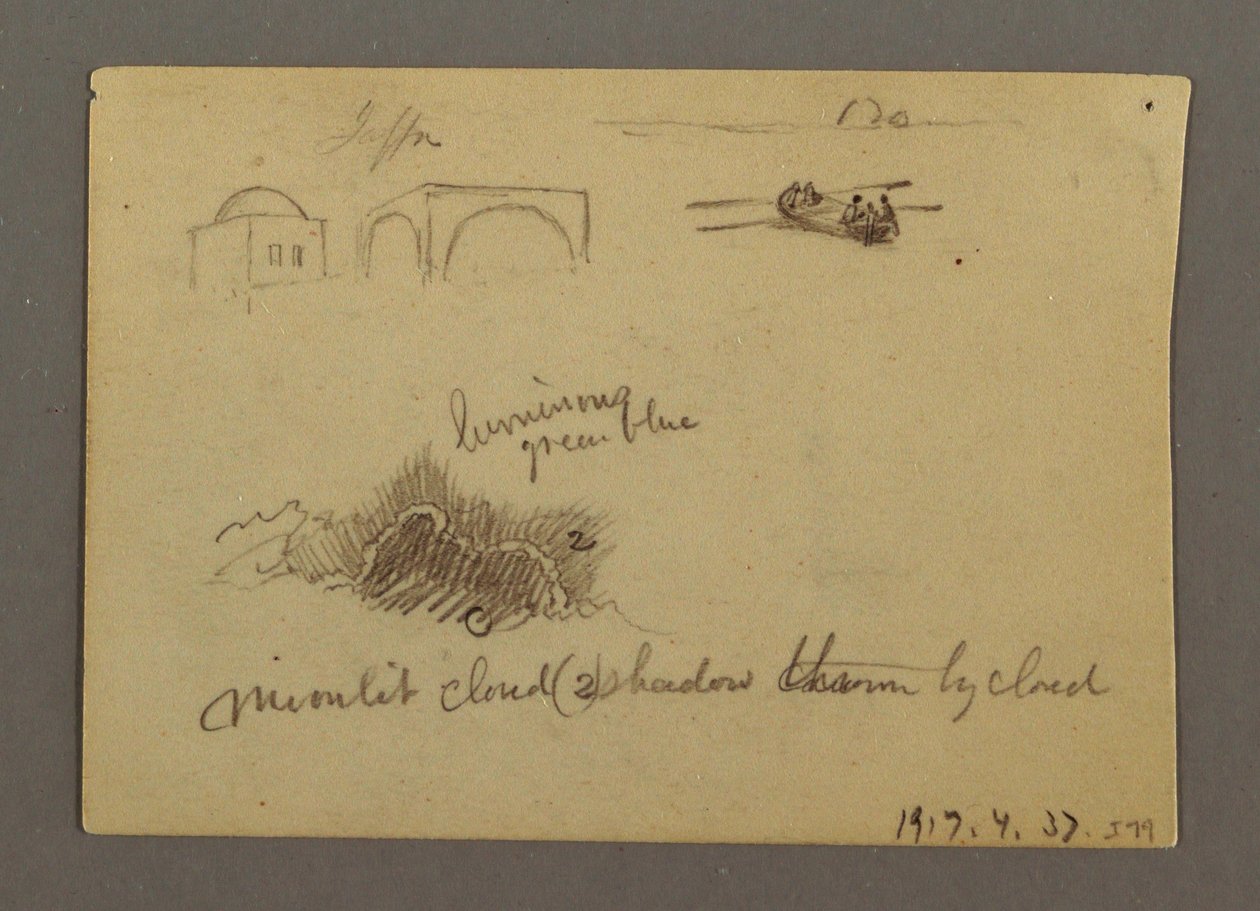 Jaffa
Do
luminous
green blue
2
C
Moonlit cloud (2) shadow thrown by cloud
1917.4.37. J79